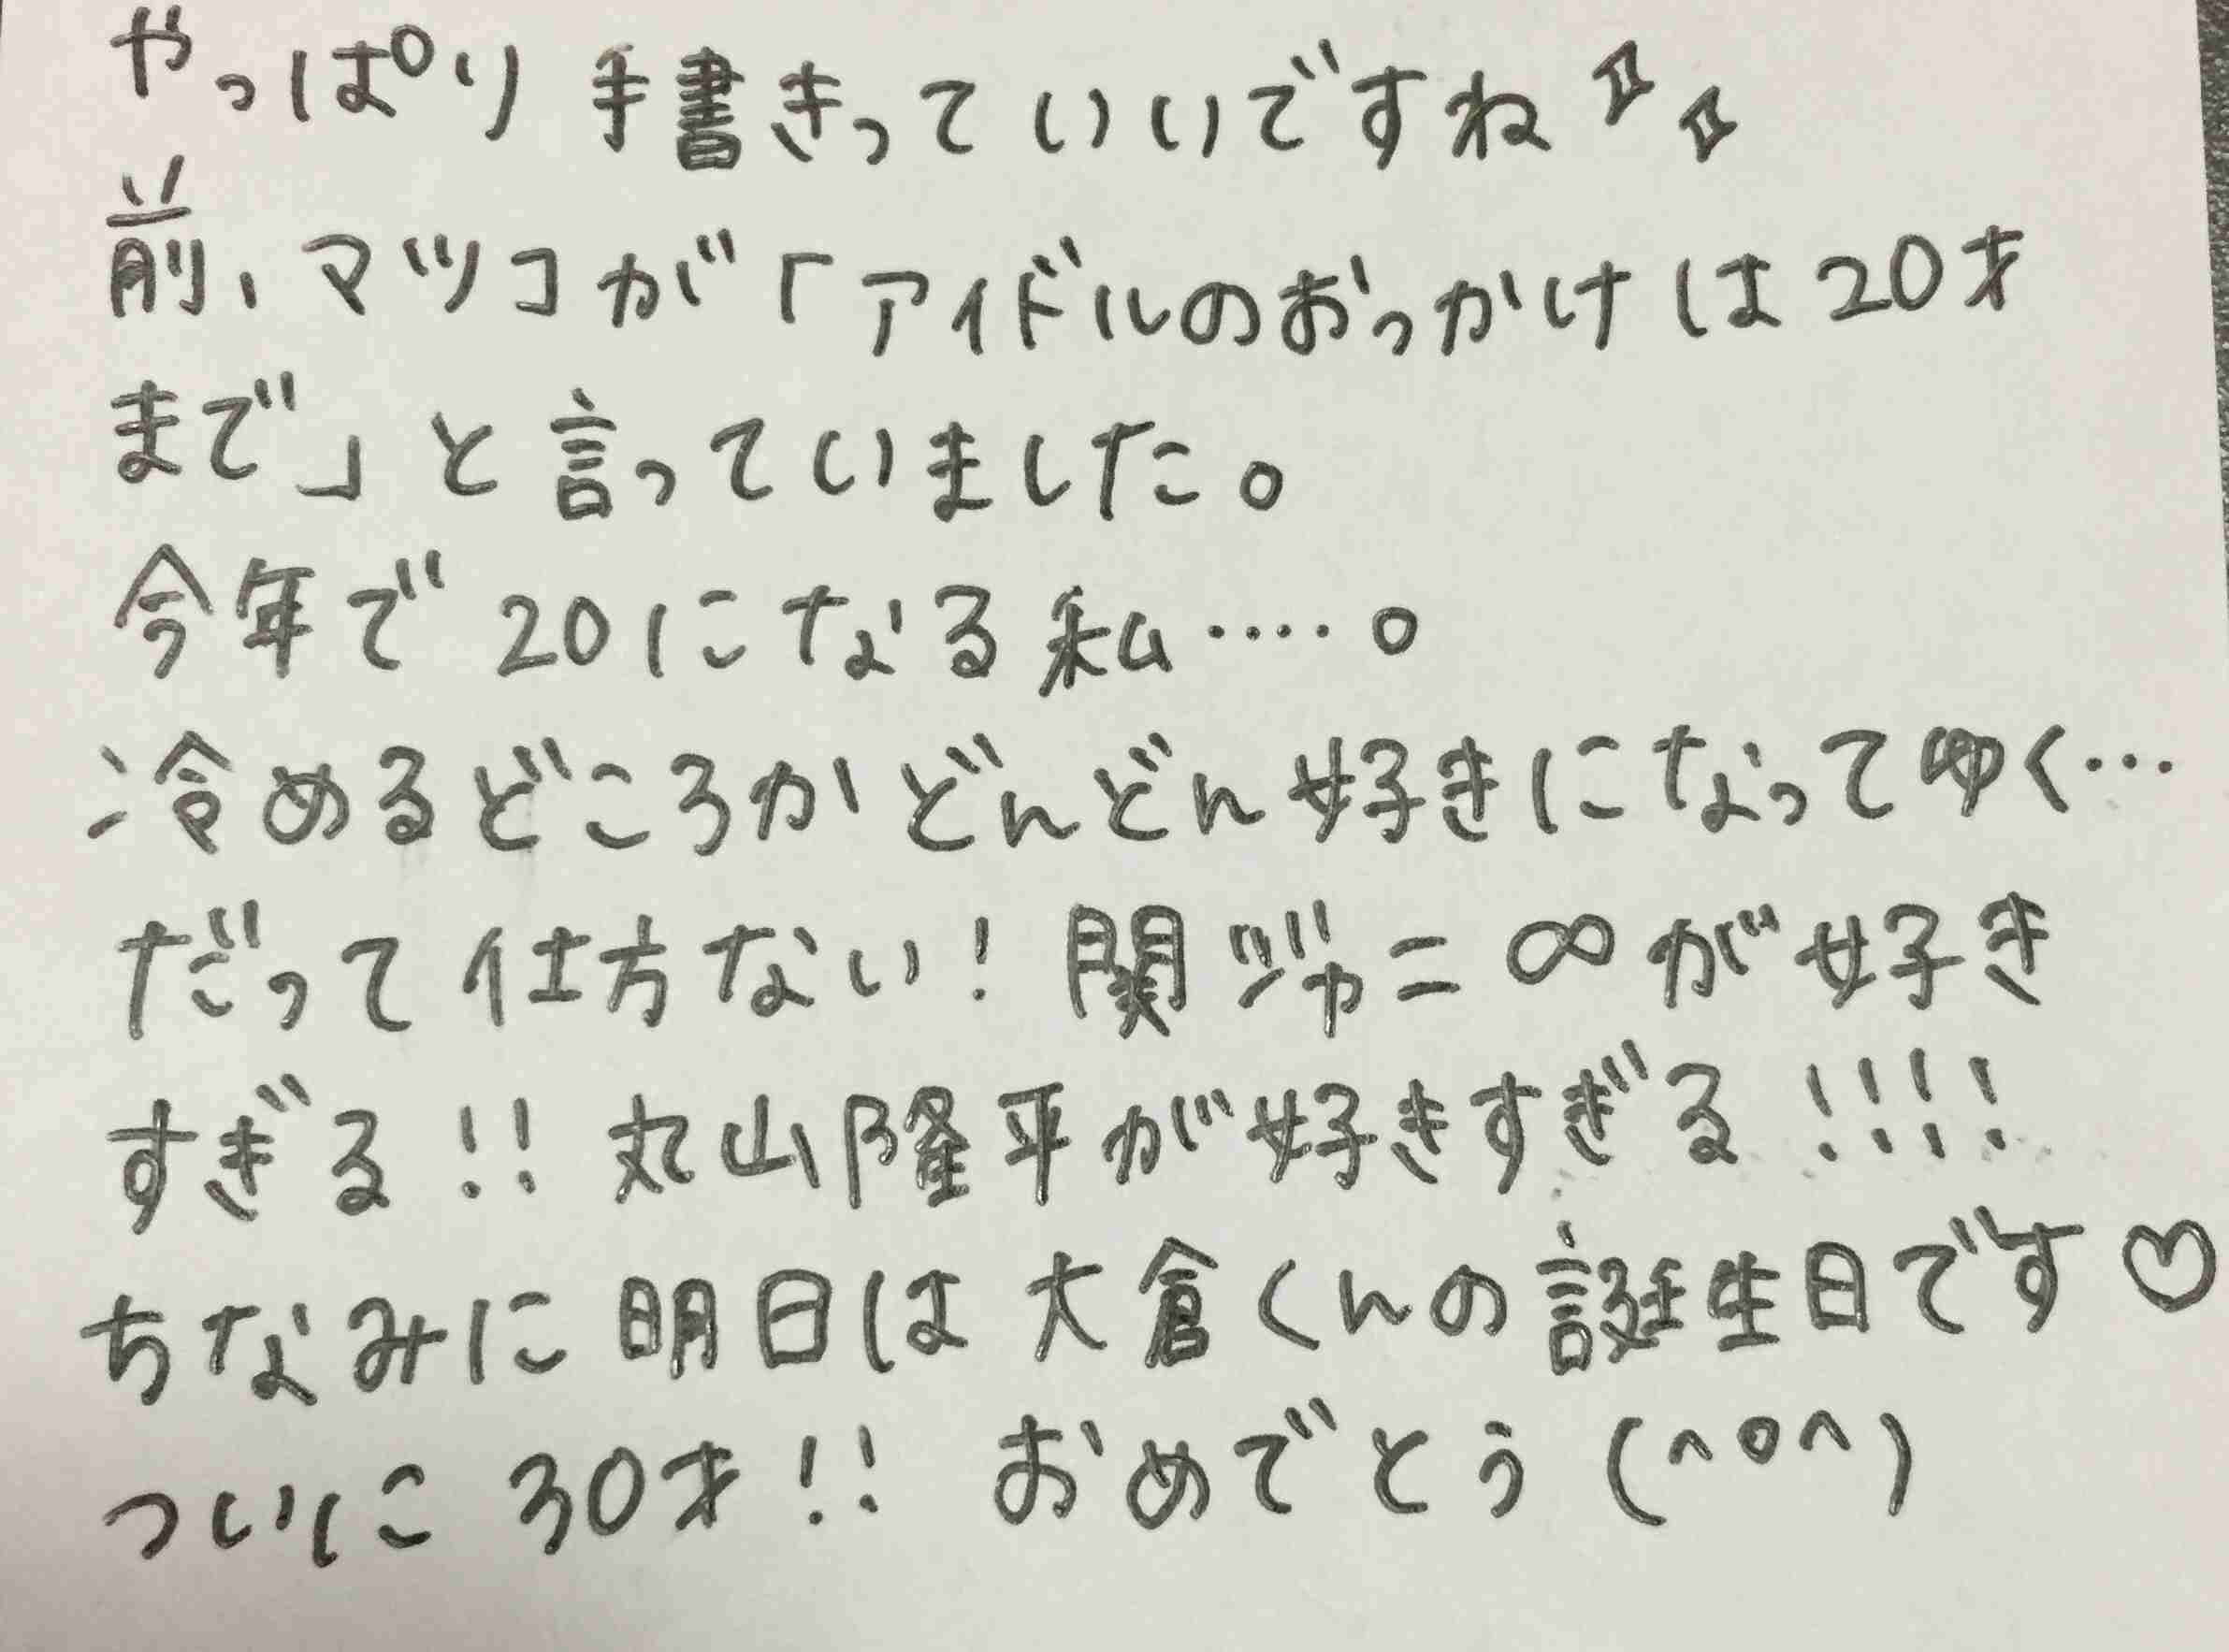 やっぱり手書きっていいですね✨
前、マツコが「アイドルのおっかけは20才
まで」と言っていました。
今年で20になる私‥‥。
冷めるどころかどんどん好きになってゆく…
だって仕方ない!関ジャニ∞が好き
すぎる!!丸山隆平が好きすぎる!!!!
ちなみに明日は大倉くんの誕生日です♡
ついに30才!! おめでとう(^o^)